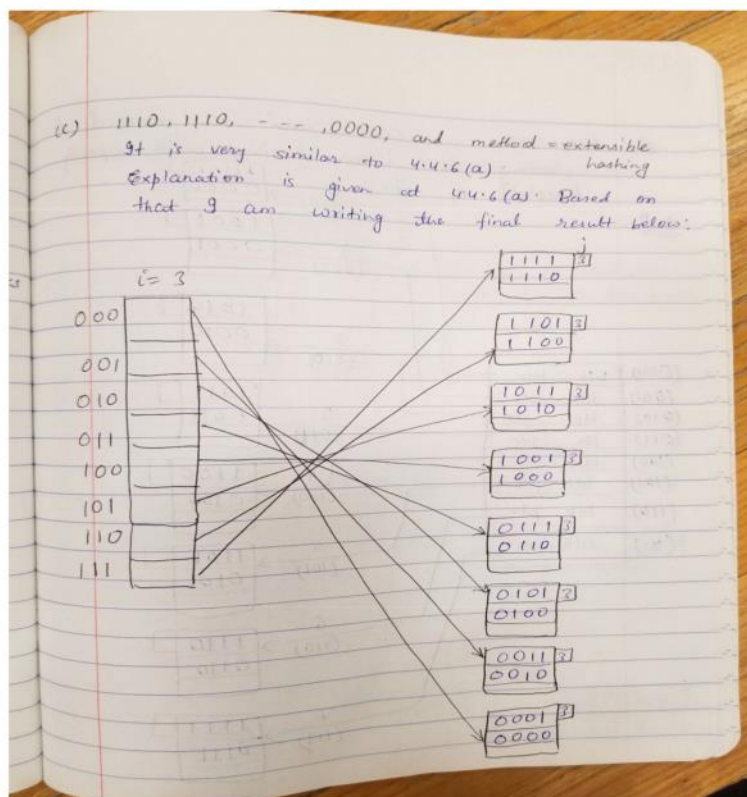 (c) 1110, 1110, - - - , 0000, and method = extensible
hashing
It is very similar to 4.4.6(a).
Explanation is given at 4.4.6(a). Based on
that I am writing the final result below:
i = 3
j
000
001
010
011
100
101
110
111
1111 3
1110
1101 3
1100
1011 3
1010
1001 3
1000
0111 3
0110
0101 3
0100
0011 3
0010
0001 3
0000